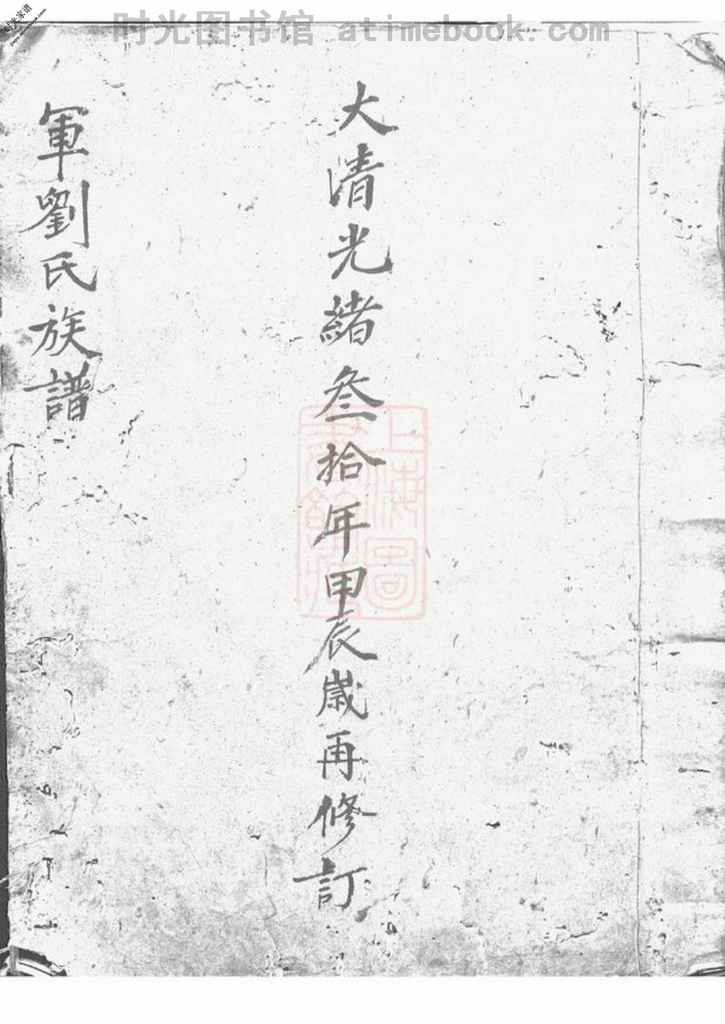 时光图书馆 atimebook.com
大清光緒叁拾年甲辰歲再修訂
軍劉氏族譜